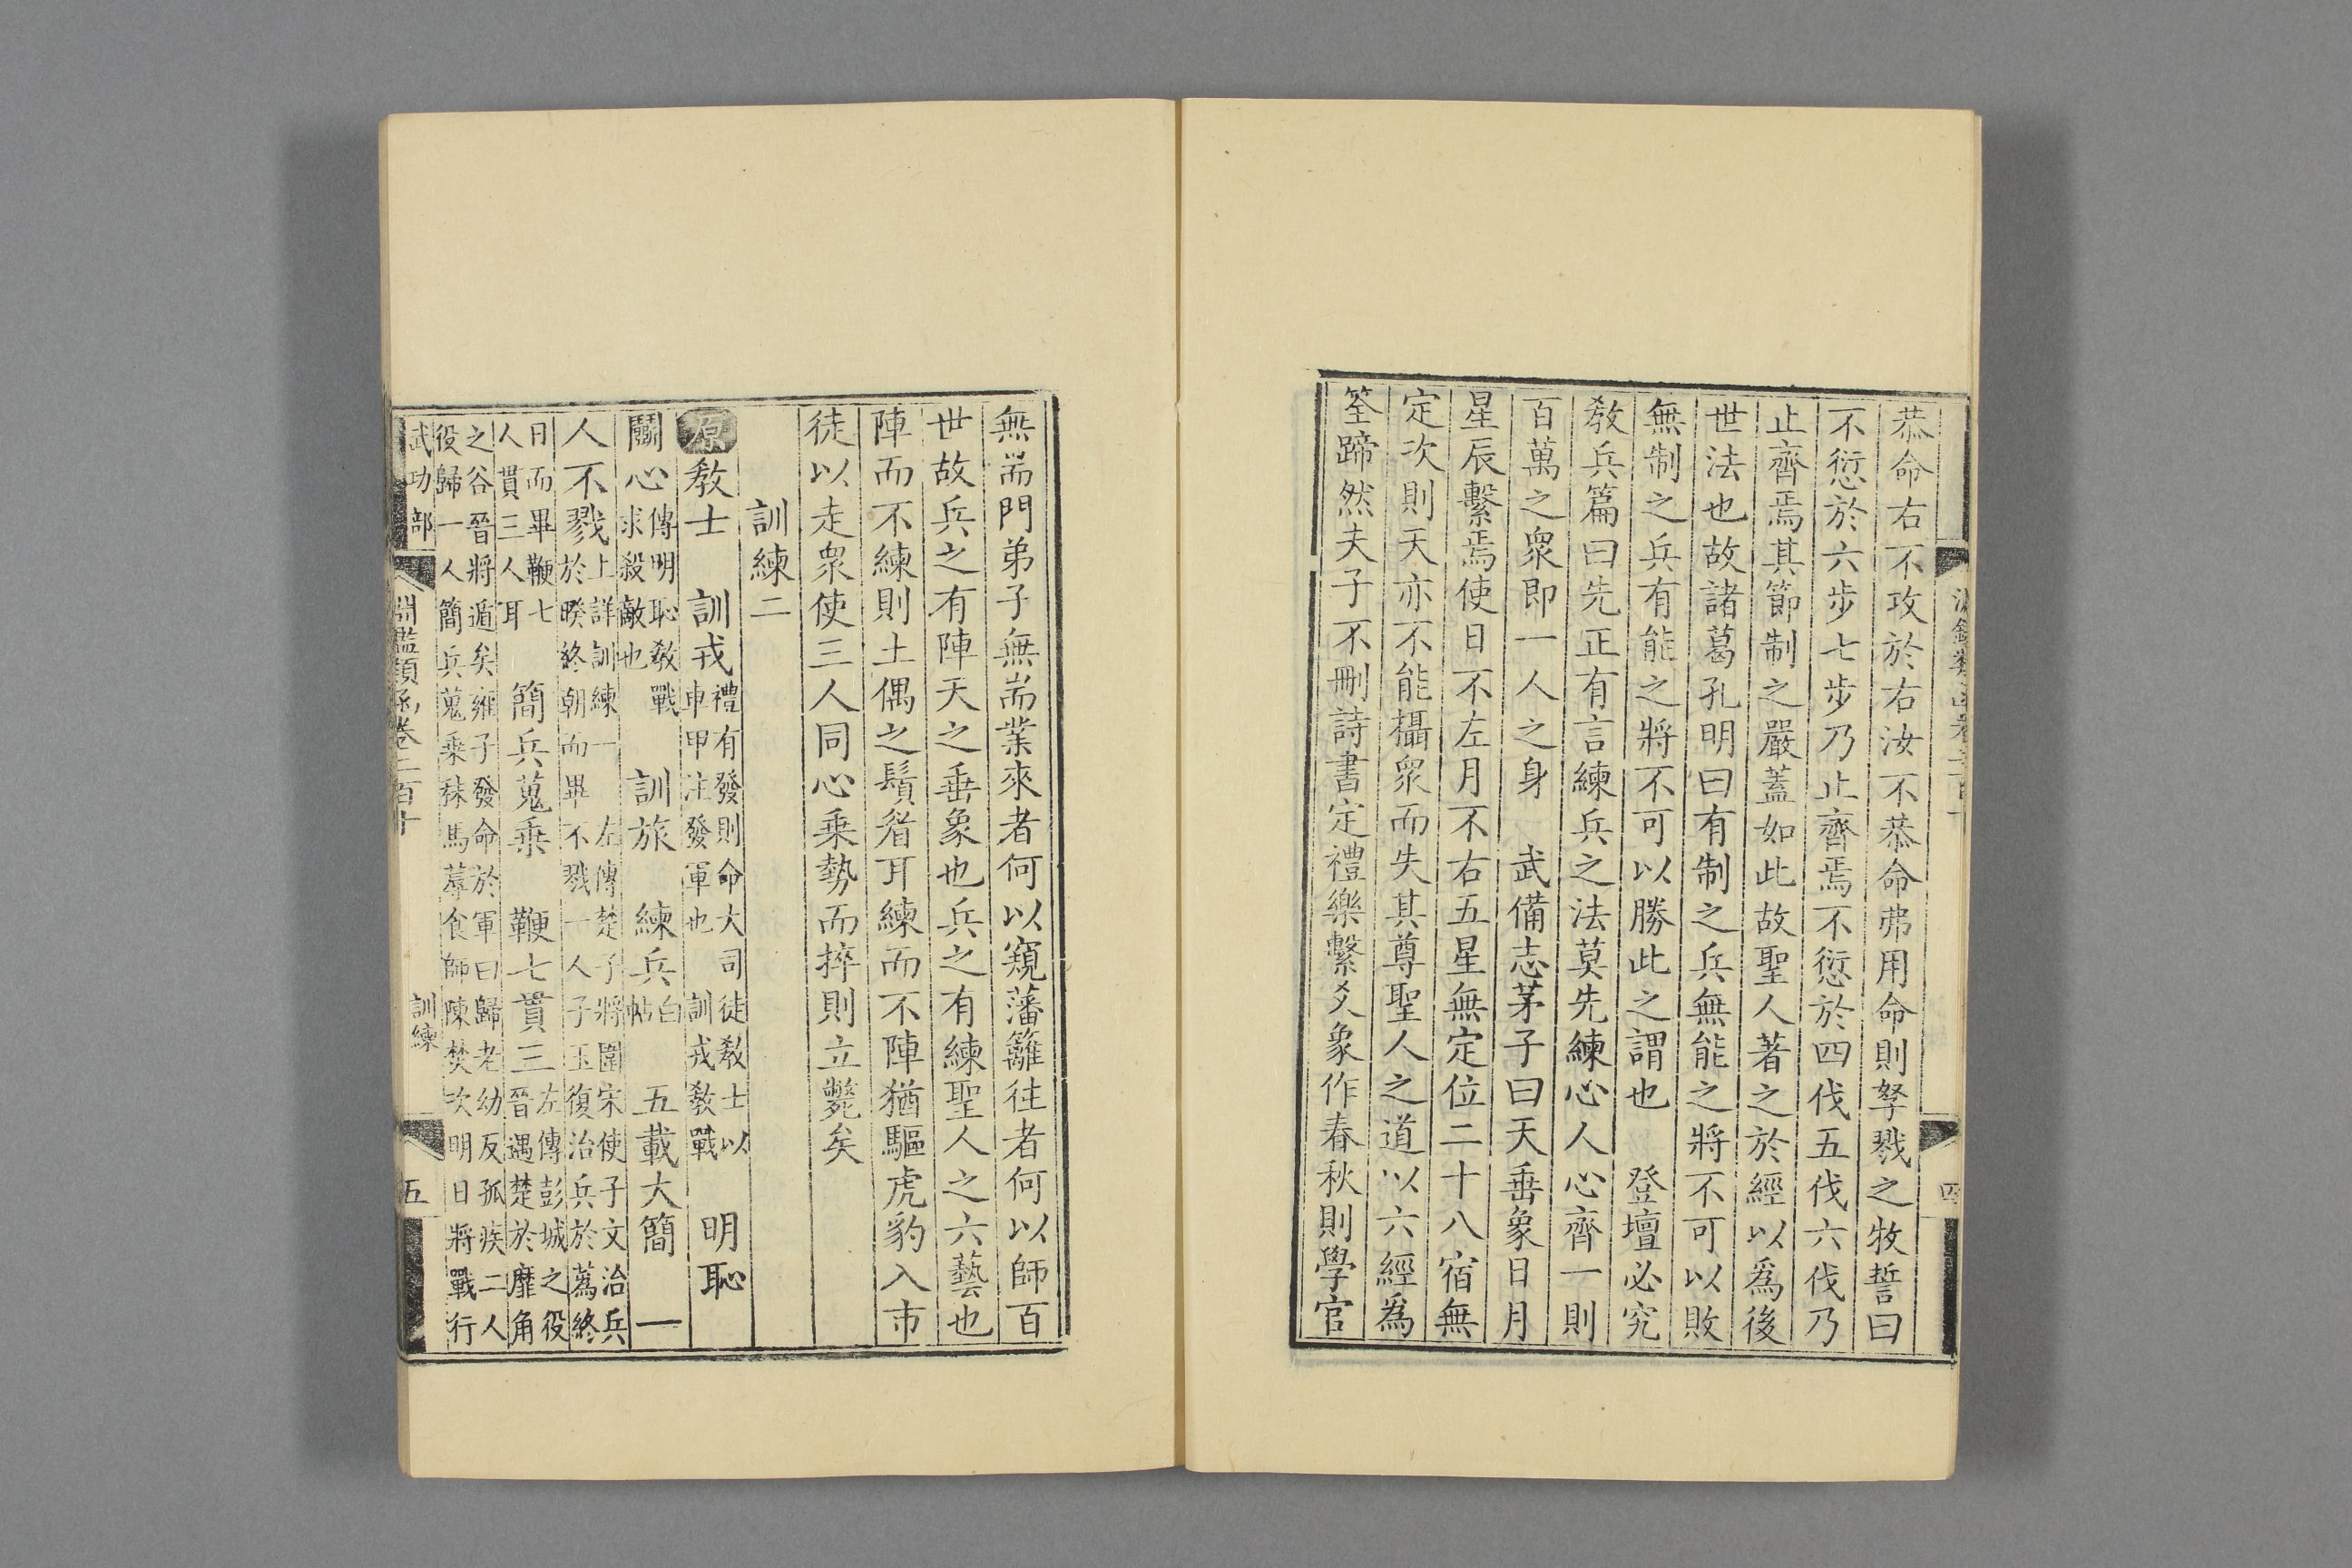 恭命右不攻於右汝不恭命弗用命則孥戮之牧誓曰
不愆於六步七步乃止齊焉不愆於四伐五伐六伐乃
止齊焉其節制之嚴蓋如此故聖人著之於經以爲後
世法也故諸葛孔明曰有制之兵無能之將不可以敗
無制之兵有能之將不可以勝此之謂也　登壇必究
敎兵篇曰先正有言練兵之法莫先練心人心齊一則
百萬之衆即一人之身　武備志茅子曰天垂象日月
星辰繫焉使日不左月不右五星無定位二十八宿無
定次則天亦不能攝衆而失其尊聖人之道以六經爲
筌蹄然夫子不刪詩書定禮樂繫爻象作春秋則學官
四
無耑門弟子無耑業來者何以窺藩籬往者何以師百
世故兵之有陣天之垂象也兵之有練聖人之六藝也
陣而不練則土偶之鬚眉耳練而不陣猶驅虎豹入市
徒以走衆使三人同心乗勢而捽則立斃矣
訓練二
原敎士　訓戎禮有發則命大司徒敎士以車甲注發軍也　訓戎敎戰　明恥
鬭心傳明恥敎戰求殺敵也　訓旅　練兵白帖　五載大簡　一
人不戮上詳訓練一　左傳楚子將圍宋使子文治兵於睽終朝而畢不戮一人子玉復治兵於蒍終
日而畢鞭七人貫三人耳　簡兵蒐乗　鞭七貫三左傳彭城之役晉遇楚於靡角
之谷晉將遁矣雍子發命於軍曰歸老幼反孤疾二人役歸一人簡兵蒐乗秣馬蓐食師陳焚次明日將戰行
武功部　淵鑑類函卷二百十　訓練　五